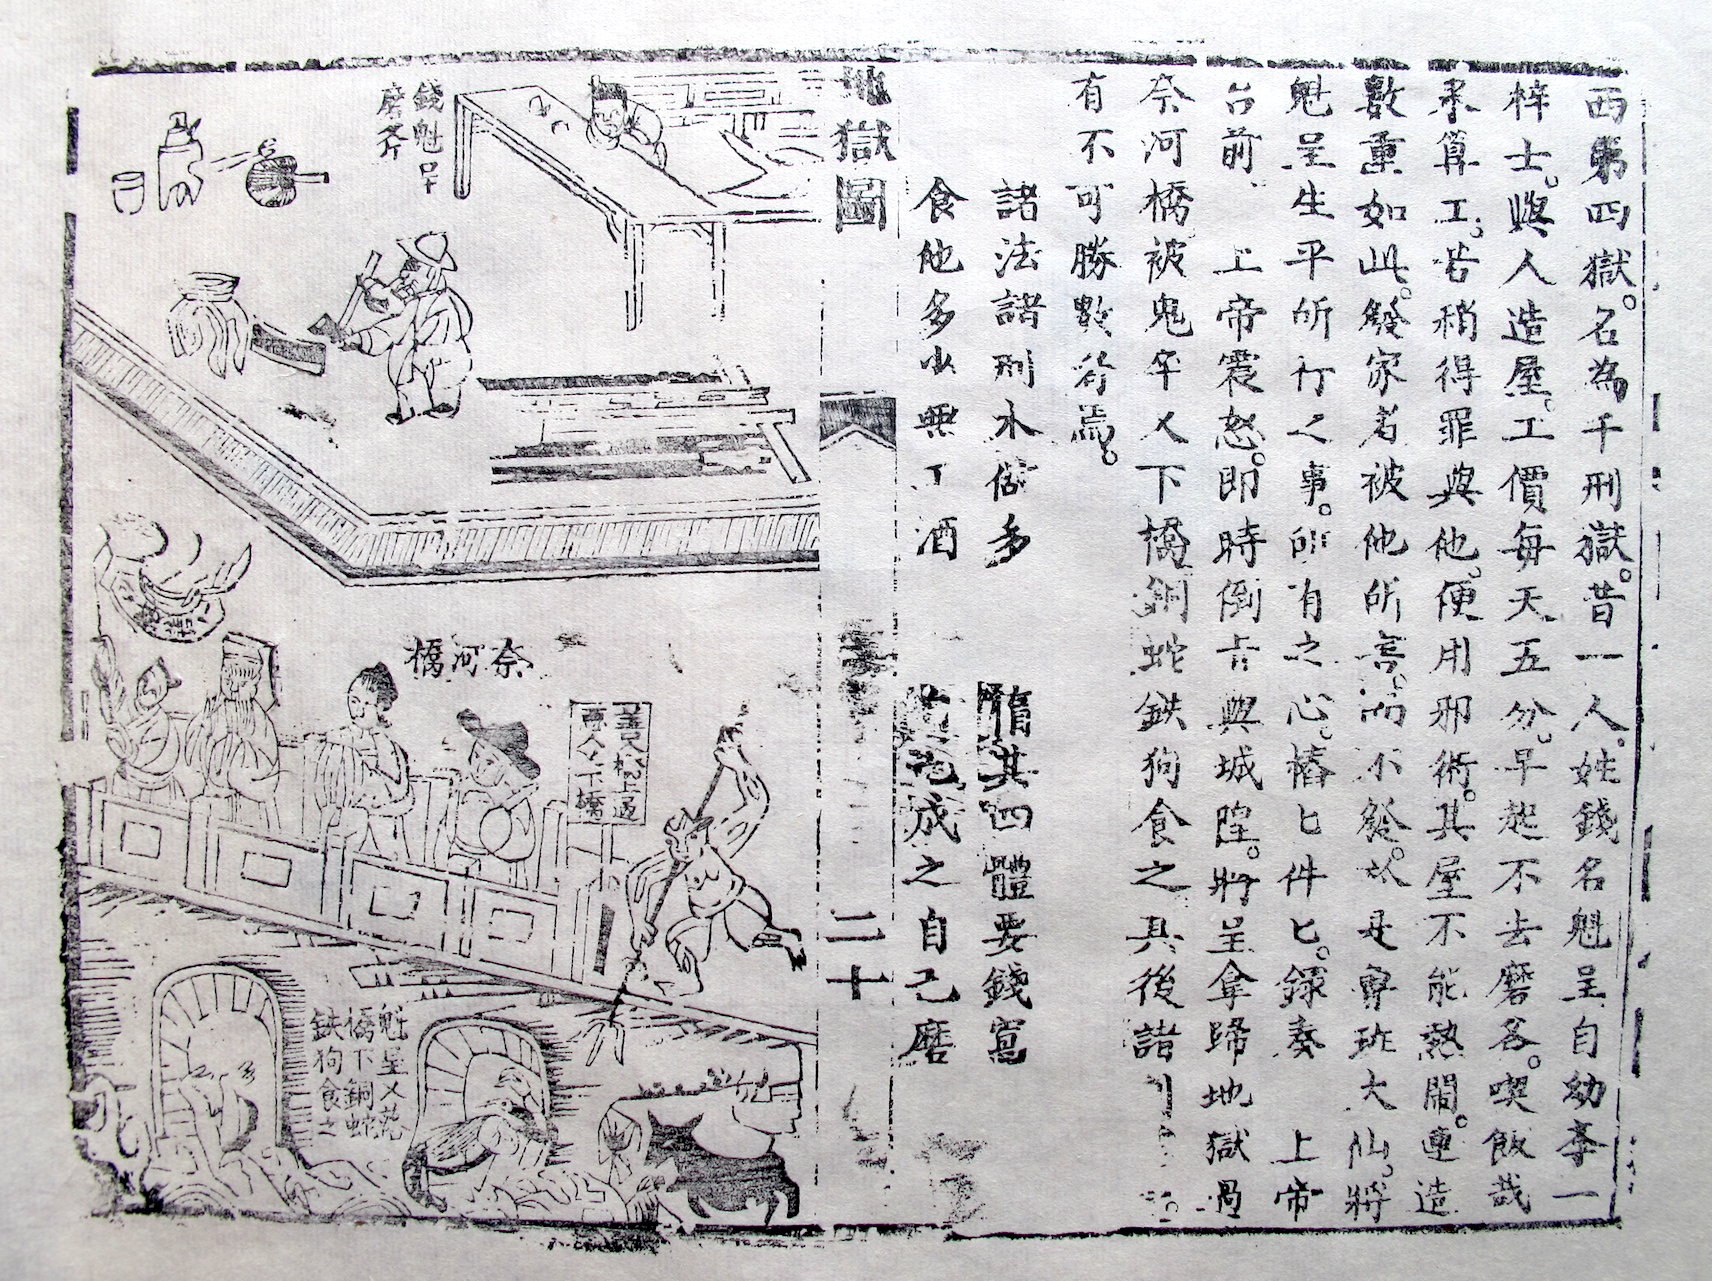 西第四獄。名為千刑獄。昔一人。姓錢名魁呈自幼李一
梓士。與人造屋。工價每天五分。早起不去磨各。喫飯哉
來算工。若稍得罪與他。便用邪術。其屋不能熱鬧。連造
數重如此。發家者被他所害。而不發。故是魯班大仙。將
魁呈生平所行之事。所有之心。樁匕件匕。錄奏 上帝
台前 上帝震怒。即時倒旨與城隍。將呈拿歸地獄過
奈河橋被鬼卒乂下橋銅蛇鉄狗食之具後諸
有不可勝數行焉。
諸法諸刑水做多 惰其四體要錢寫
食他多少無丁酒 成之自己磨
地獄圖
二十
錢魁呈
磨斧
奈河橋
善人橋上過
惡人下橋
魁呈乂落
橋下銅蛇
鉄狗食之